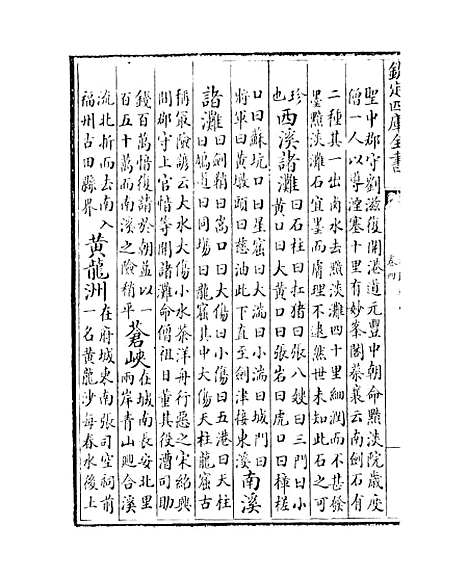 欽定四庫全書
卷四
聖中郡守劉滋復開港道元豐中朝命黯淡院歲度
僧一人以導湮塞十里有妙峯閣蔡襄云南劍石有
二種其一出嵒水去黯淡灘四十里細潤而不甚發
墨黯淡灘石宜墨而膚理不逮然世未知此石之可
珍也 西溪諸灘 曰石柱曰扛猪曰張八嫂曰三門曰小
黄口曰大黄口曰張岩曰虎口曰樟槎
口曰蘇坑口曰星窟曰大湍曰小湍曰城門曰
將軍曰黄墩頭曰慈油此下直至劍津接東溪 南溪
諸灘 曰劍稍曰嵩口曰大傷曰小傷曰五港曰天柱
曰鴨道曰同塲曰龍窟其中大傷天柱龍窟古
稱最險諺云大水大傷小水茶洋舟行惡之宋紹興
間郡守上官愔等開諸灘命僧祖日董其役漕司助
錢百萬愔復請於朝益以一
百五十萬而南溪之險稍平 蒼峽 在城南長安北里
兩岸青山廻合溪
流北折而去南入
福州古田縣界 黄龍洲 在府城東南張司空祠前
一名黄龍沙每春水後上